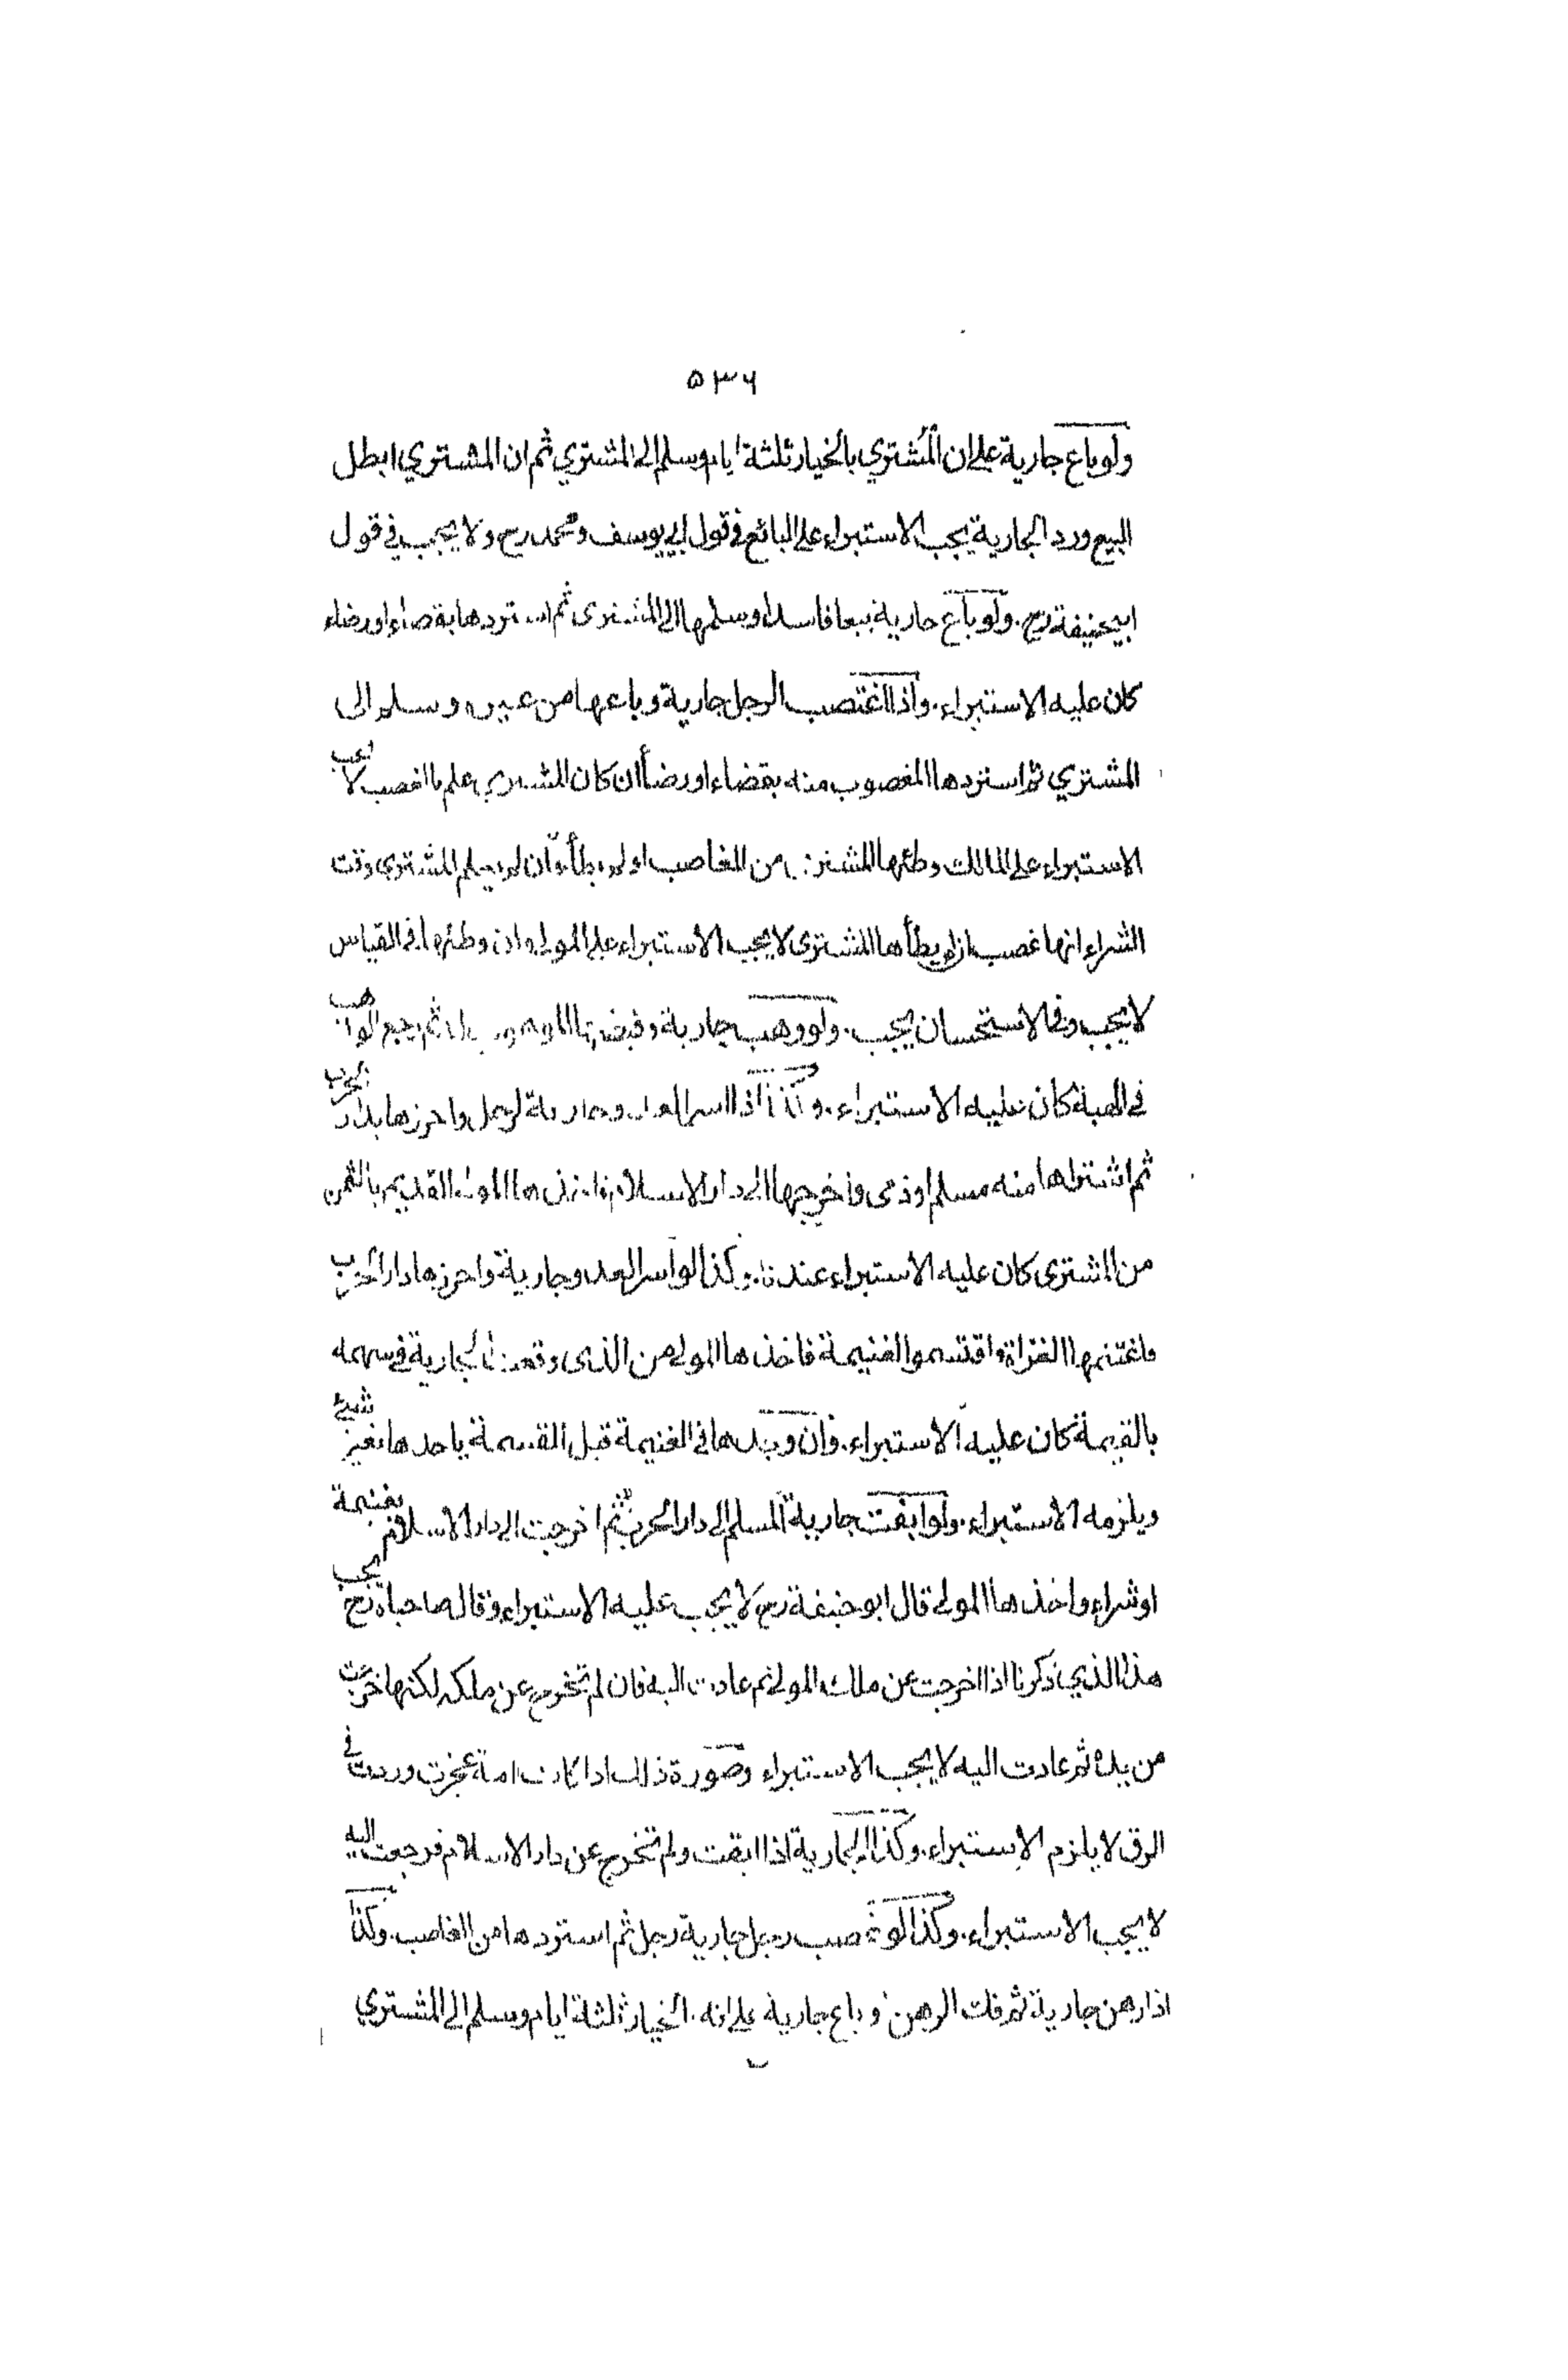 ۵۳۶
ولو باع جارية على ان المُشتري بالخيار ثلثة ايام وسلم الى المشتري ثم ان المشتري ابطل
البيع ورد الجارية يجب الاستبراء على البائع في قول ابي يوسف ومحمد رح ولا يجب في قول
ابيحنيفة رح. ولو باع جارية بيعا فاسدا وسلمها الى المشترى ثم استردها بقضاء او رضاء
كان عليه الاستبراء. واذا اغتصب الرجل جارية وباعها من غيره وسلم الى
المشتري ثم استردها المغصوب منه بقضاء او رضا ان كان المشتري علم بالغصب لا يجب
الاستبراء على المالك وطئها المشتري من الغاصب او لم يطأ وان لم يعلم المشترى وقت
الشراء انها غصب ان لم يطأها المشترى لا يجب الاستبراء على المولى وان وطئها في القياس
لا يجب وفى الاستحسان يجب. ولو وهب جارية وقبضها الموهوب له ثم رجع الواهب
في الهبة كان عليه الاستبراء. وكذا اذا اسر العدو جارية لرجل واحرزها بدار الحرب
ثم اشتراها منه مسلم او ذمى واخرجها الى دار الاسلام فاخذها المولى القديم بالثمن
من المشترى كان عليه الاستبراء عندنا. وكذا لو اسر العدو جارية واحرزها دار الحرب
واغتنمها الغزاة واقتسموا الغنيمة فاخذها المولى من الذى وقعت الجارية في سهمه
بالقيمة كان عليه الاستبراء. وان وجدها في الغنيمة قبل القسمة ياخذها بغير شيئ
ويلزمه الاستبراء. ولو ابقت جارية المسلم الى دار الحرب ثم اخرجت الى دار الاسلام بغنيمة
او شراء واخذها المولى قال ابو حنيفة رح لا يجب عليه الاستبراء وقال صاحباه رح يجب
هذا الذي ذكرنا اذا خرجت عن ملك المولى ثم عادت اليه فان لم تخرج عن ملكه لكنها خرجت
من يده ثم عادت اليه لا يجب الاستبراء وصورة ذلك اذا كاتب امة عجزت وردت في
الرق لا يلزم الاستبراء. وكذا الجارية اذا ابقت ولم تخرج عن دار الاسلام فرجعت اليه
لا يجب الاستبراء. وكذا لو غصب رجل جارية رجل ثم استردها من الغاصب. وكذا
اذا رهن جارية ثم فلت الرهن وباع جارية على انه بالخيار ثلثة ايام وسلم الى المشتري